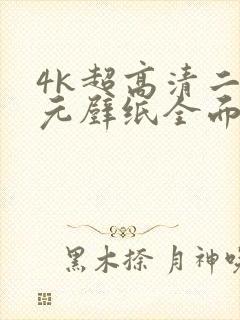 4K超高清二
元壁纸全面
黑木捺 月神